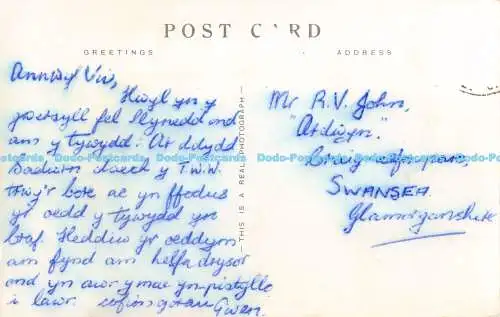 POST CARD
GREETINGS
ADDRESS
Annwyl Viv,
Hwyl yn y
gwersyll fel llynedd ond
am y tywydd! Ar ddydd
Sadwrn daeth y T.W.W.
trwy'r bore ac yn ffodus
yr oedd y tywydd yn
braf. Heddiw yr oeddym
am fynd am helfa drysor
ond yn awr y mae yn pistyllo
i lawr. Gwen.
THIS IS A REAL PHOTOGRAPH
Mr R.V. John,
"Ardwyn",
SWANSEA
Glamorganshire
Dodo-Postcards Dodo-Postcards Dodo-Postcards Dodo-Postcards